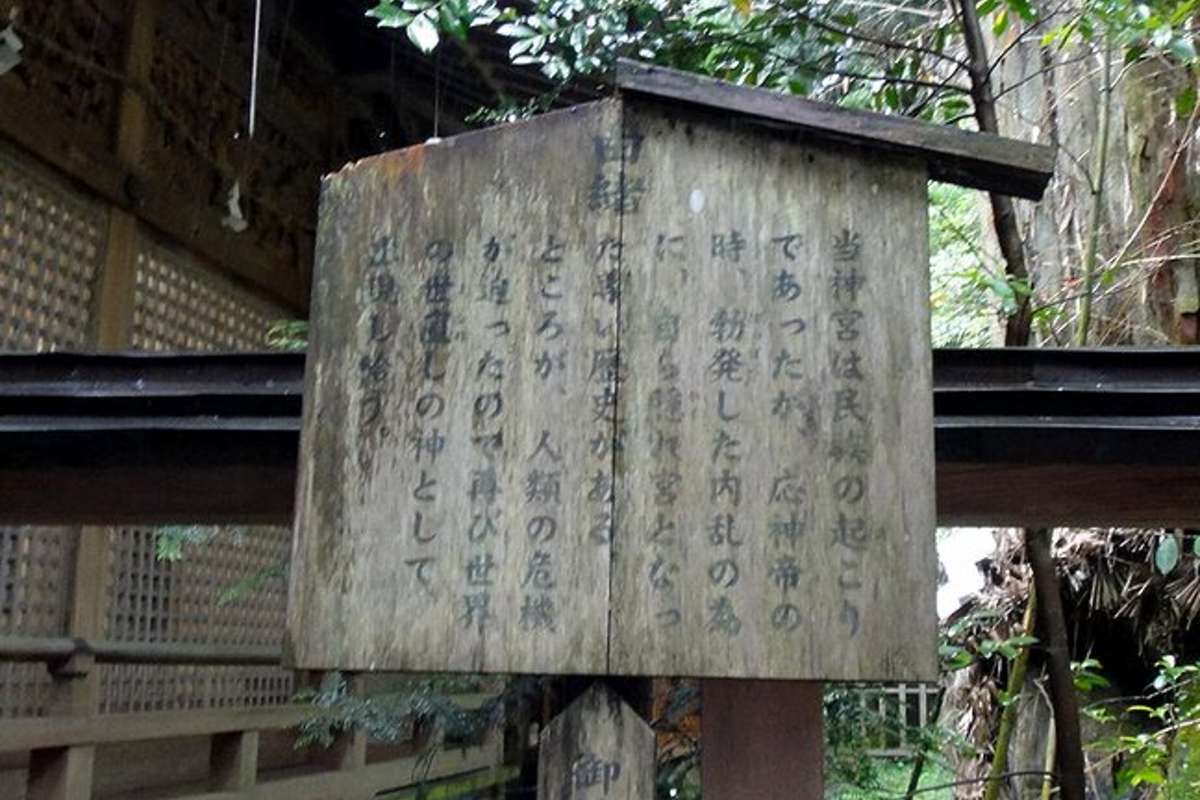 由緒
当神宮は民族の起こり
であったが、応神帝の
時、勃発した内乱の為
に、自ら隠れ宮となっ
た尊い歴史がある
ところが、人類の危機
が迫ったので再び世界
の世直しの神として
出現し給う。
御